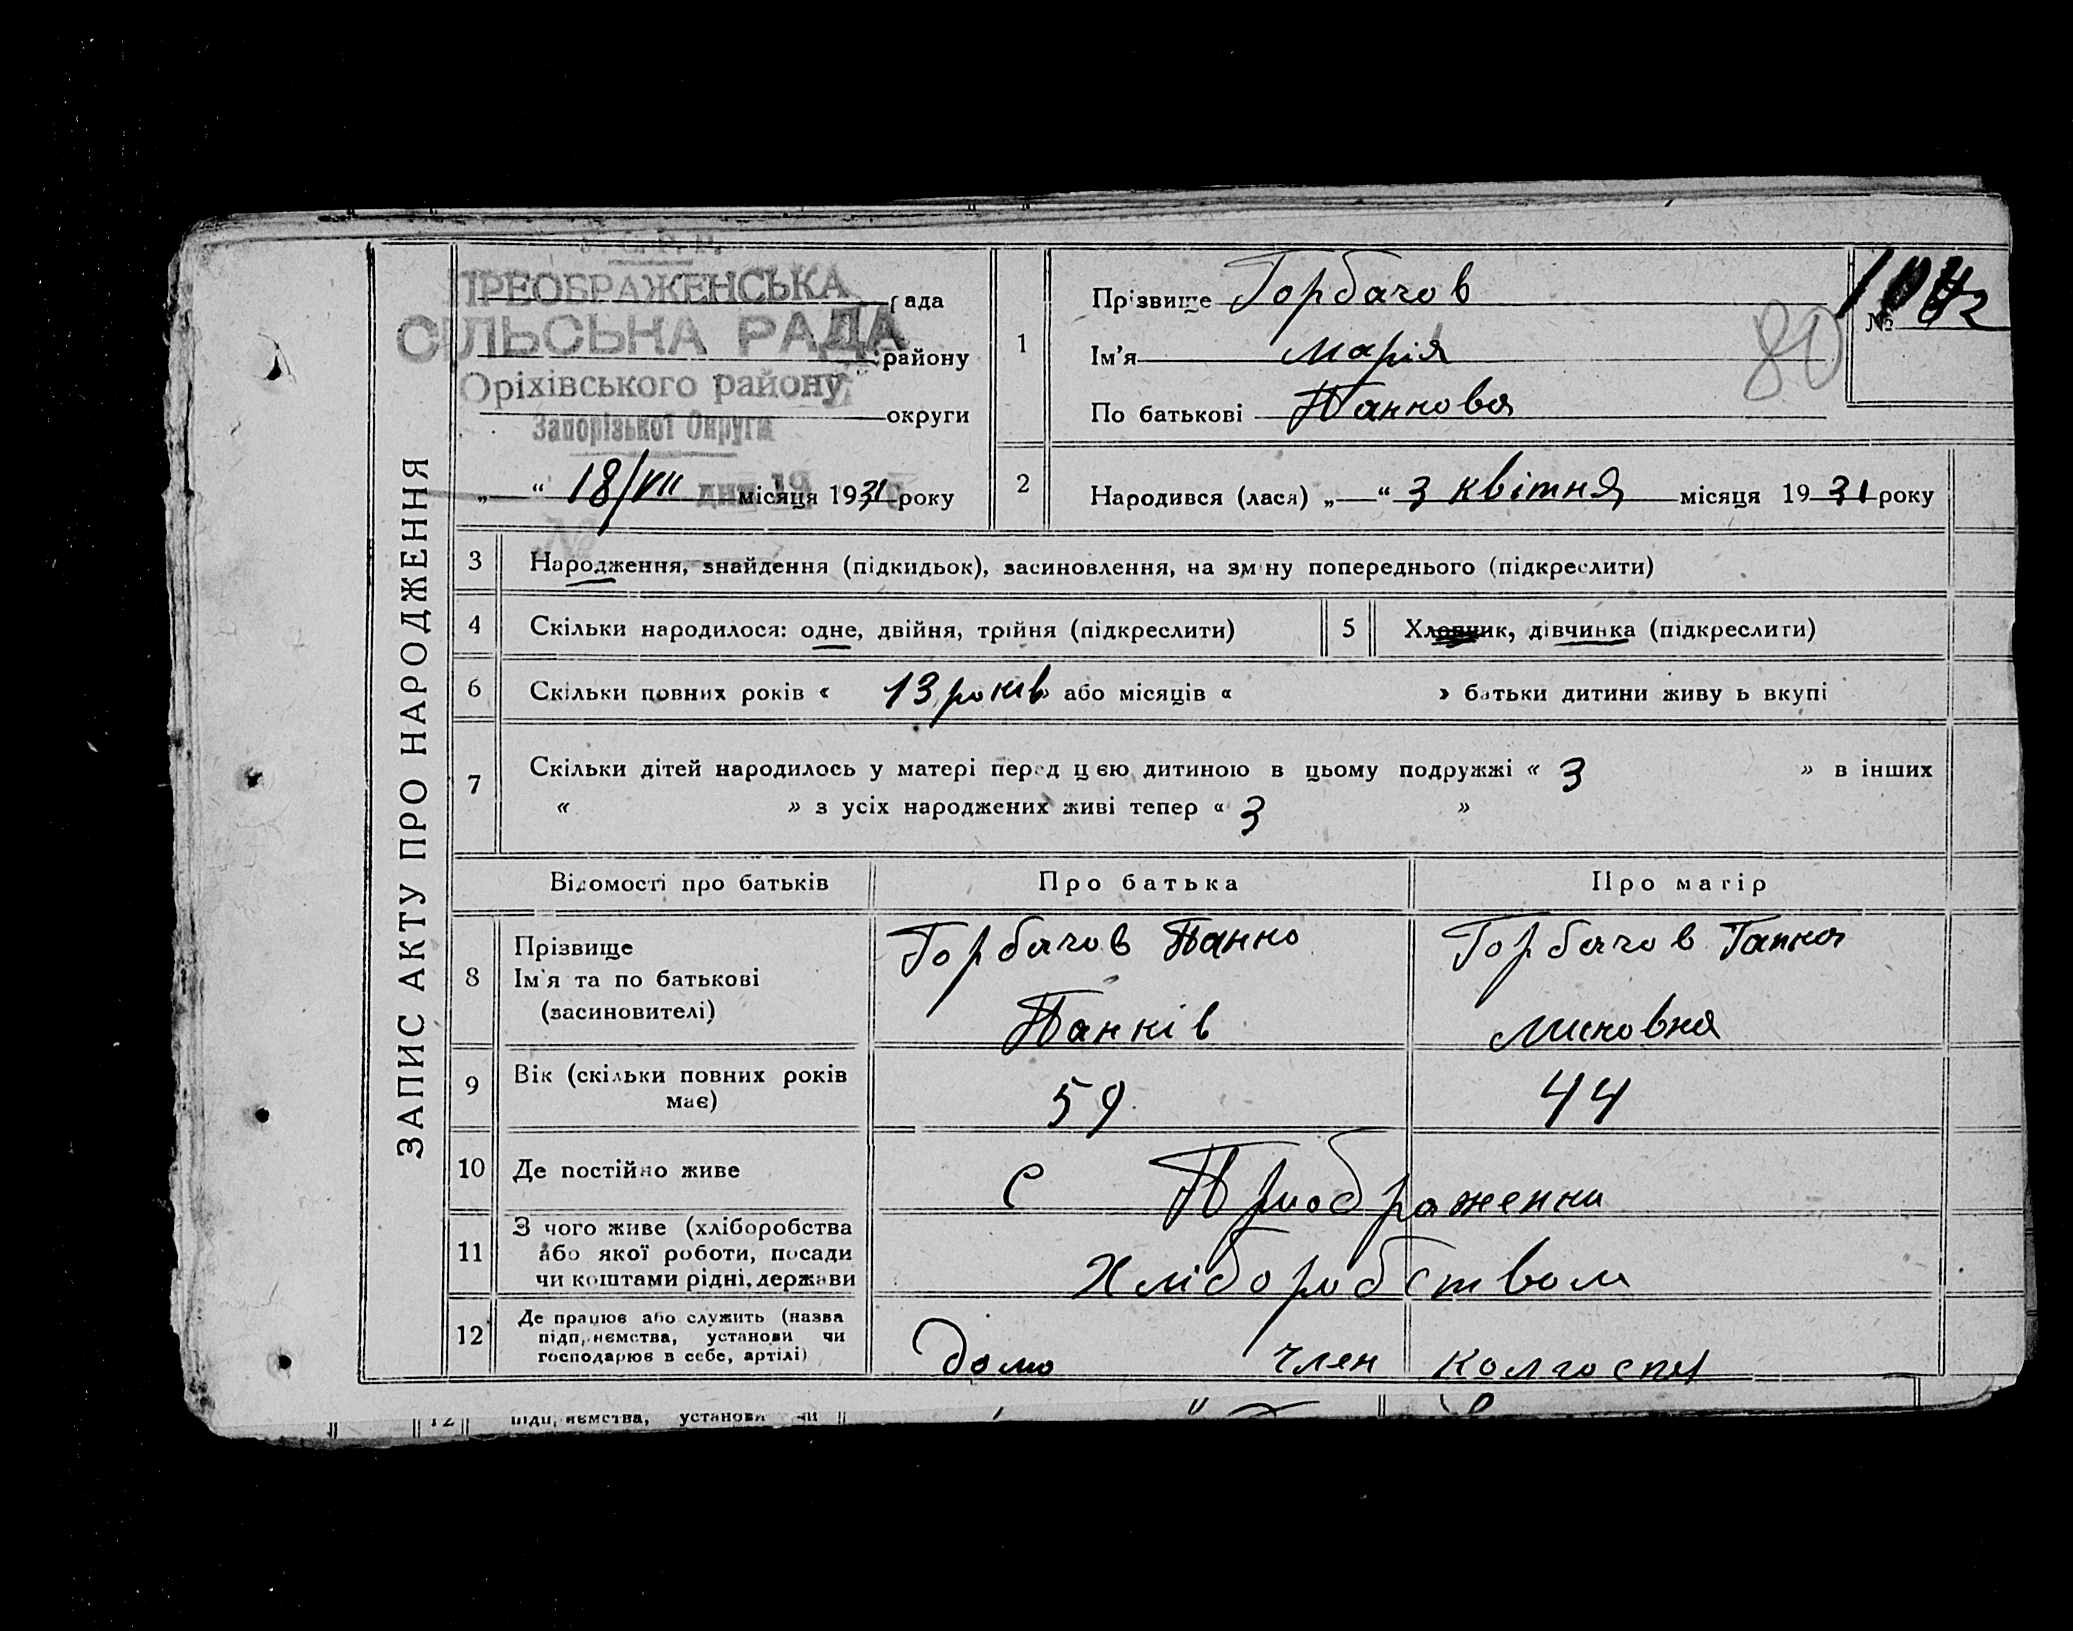 У. С. Р. Р.
ПРЕОБРАЖЕНСЬКА рада
СІЛЬСЬКА РАДА району
Оріхівського району
Запорізької Округи округи
„ “ 18/VII дня 19 місяця 1931 року
№
ЗАПИС АКТУ ПРО НАРОДЖЕННЯ
1
Прізвище Горбачов
Ім'я Марія
По батькові Панкова
80
№
2 Народився (лася) „ “ 3 квітня місяця 1931 року
3 Народження, знайдення (підкидьок), засиновлення, на зміну попереднього (підкреслити)
4 Скільки народилося: одне, двійня, трійня (підкреслити) 5 Хлопчик, дівчинка (підкреслити)
6 Скільки повних років « 13 років » або місяців « » батьки дитини живуть вкупі
7 Скільки дітей народилось у матері перед цією дитиною в цьому подружжі « 3 » в інших
« » з усіх народжених живі тепер « 3 »
Відомості про батьків Про батька Про матір
8 Прізвище
Ім'я та по батькові
(засиновителі)
Горбачов Панко
Панків
Горбачов Гапка
9 Вік (скільки повних років
має)
59 44
10 Де постійно живе С Приображенки
11 З чого живе (хліборобства
або якої роботи, посади
чи коштами рідні, держави
Хліборобством
12 Де працює або служить (назва
підприємства, установи чи
господарює в себе, артілі)
дома член колгоспу
12 підприємства, установи чи